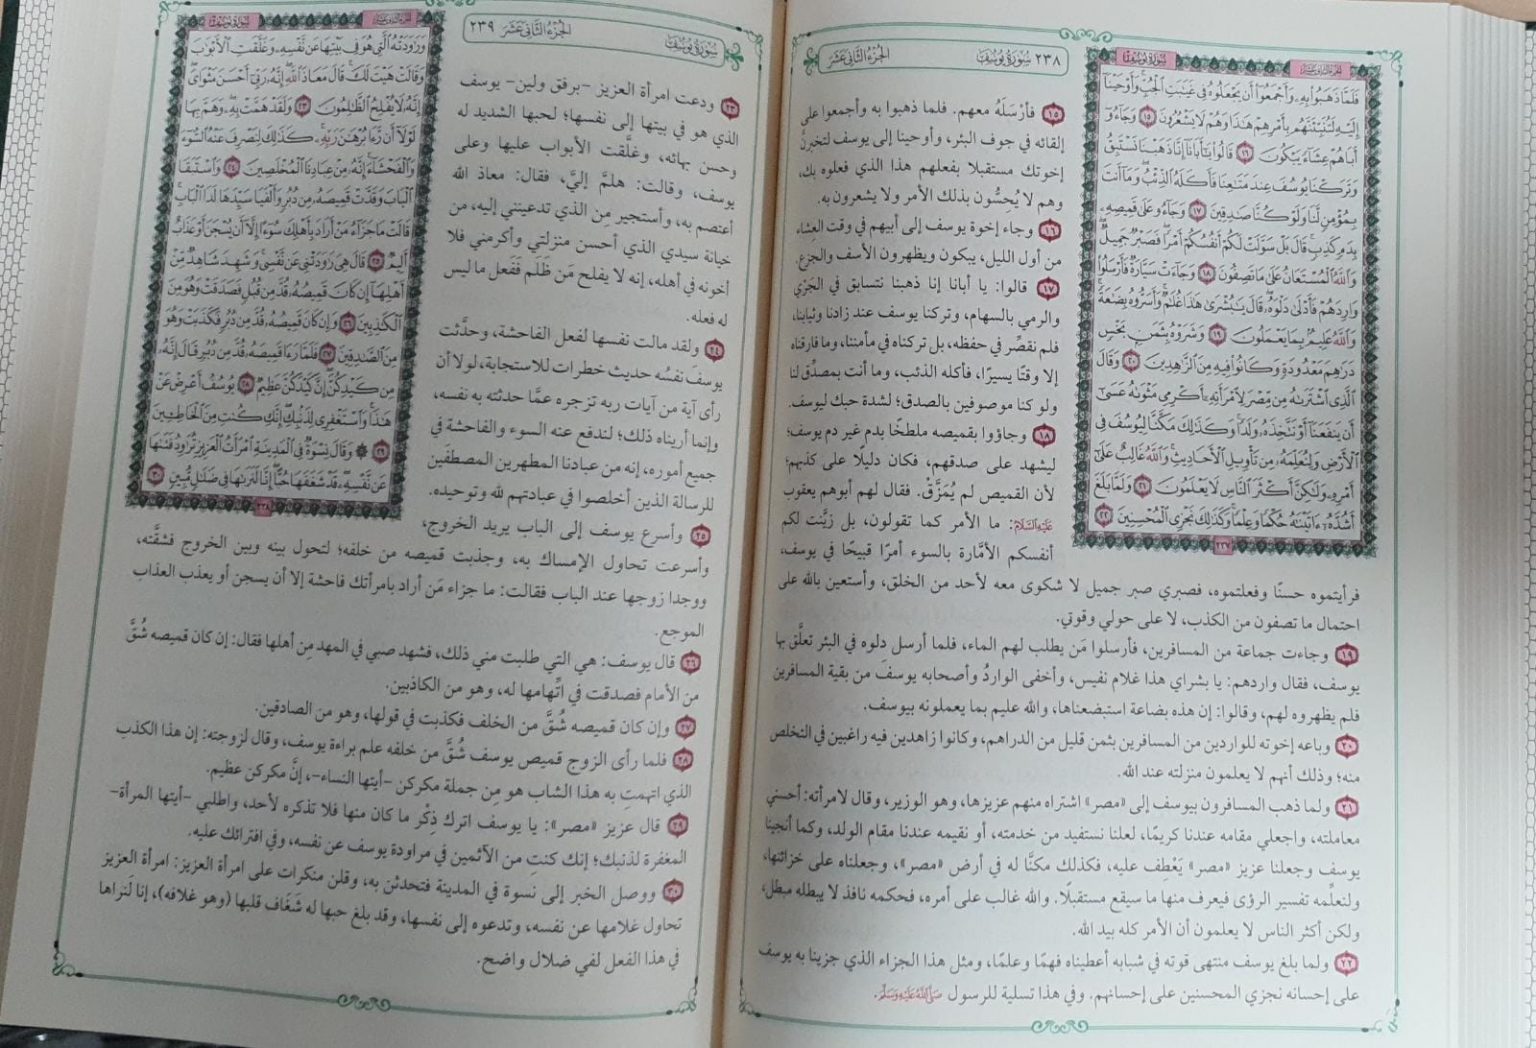 ٢٣٨ سُورَةُ يُوسُفَ الجُزْءُ الثَّانِي عَشَرَ
الجزء الثاني عشر سورة يوسف
فَلَمَّا ذَهَبُوا۟ بِهِۦ وَأَجْمَعُوٓا۟ أَن يَجْعَلُوهُ فِى غَيَٰبَتِ ٱلْجُبِّ وَأَوْحَيْنَآ
إِلَيْهِ لَتُنَبِّئَنَّهُم بِأَمْرِهِمْ هَٰذَا وَهُمْ لَا يَشْعُرُونَ ١٥ وَجَآءُوٓ
أَبَاهُمْ عِشَآءً يَبْكُونَ ١٦ قَالُوا۟ يَٰٓأَبَانَآ إِنَّا ذَهَبْنَا نَسْتَبِقُ
وَتَرَكْنَا يُوسُفَ عِندَ مَتَٰعِنَا فَأَكَلَهُ ٱلذِّئْبُ وَمَآ أَنتَ
بِمُؤْمِنٍ لَّنَا وَلَوْ كُنَّا صَٰدِقِينَ ١٧ وَجَآءُو عَلَىٰ قَمِيصِهِۦ
بِدَمٍ كَذِبٍ قَالَ بَلْ سَوَّلَتْ لَكُمْ أَنفُسُكُمْ أَمْرًا فَصَبْرٌ جَمِيلٌ
وَٱللَّهُ ٱلْمُسْتَعَانُ عَلَىٰ مَا تَصِفُونَ ١٨ وَجَآءَتْ سَيَّارَةٌ فَأَرْسَلُوا۟
وَارِدَهُمْ فَأَدْلَىٰ دَلْوَهُۥ قَالَ يَٰبُشْرَىٰ هَٰذَا غُلَٰمٌ وَأَسَرُّوهُ بِضَٰعَةً
وَٱللَّهُ عَلِيمٌۢ بِمَا يَعْمَلُونَ ١٩ وَشَرَوْهُ بِثَمَنٍۭ بَخْسٍ
دَرَٰهِمَ مَعْدُودَةٍ وَكَانُوا۟ فِيهِ مِنَ ٱلزَّٰهِدِينَ ٢٠ وَقَالَ
ٱلَّذِى ٱشْتَرَىٰهُ مِن مِّصْرَ لِٱمْرَأَتِهِۦٓ أَكْرِمِى مَثْوَىٰهُ عَسَىٰٓ
أَن يَنفَعَنَآ أَوْ نَتَّخِذَهُۥ وَلَدًا وَكَذَٰلِكَ مَكَّنَّا لِيُوسُفَ فِى
ٱلْأَرْضِ وَلِنُعَلِّمَهُۥ مِن تَأْوِيلِ ٱلْأَحَادِيثِ وَٱللَّهُ غَالِبٌ عَلَىٰٓ
أَمْرِهِۦ وَلَٰكِنَّ أَكْثَرَ ٱلنَّاسِ لَا يَعْلَمُونَ ٢١ وَلَمَّا بَلَغَ
أَشُدَّهُۥٓ ءَاتَيْنَٰهُ حُكْمًا وَعِلْمًا وَكَذَٰلِكَ نَجْزِى ٱلْمُحْسِنِينَ ٢٢
٢٣٧
١٥ فأرْسَلَهُ معهم. فلما ذهبوا به وأجمعوا على
إلقائه في جوف البئر، وأوحينا إلى يوسف لتخبرنَّ
إخوتك مستقبلا بفعلهم هذا الذي فعلوه بك،
وهم لا يُحسُّون بذلك الأمر ولا يشعرون به.
١٦ وجاء إخوة يوسف إلى أبيهم في وقت العِشاء
من أول الليل، يبكون ويظهرون الأسف والجزع.
١٧ قالوا: يا أبانا إنا ذهبنا نتسابق في الجَرْي
والرمي بالسهام، وتركنا يوسف عند زادنا وثيابنا،
فلم نقصِّر في حفظه، بل تركناه في مأمننا، وما فارقناه
إلا وقتًا يسيرًا، فأكله الذئب، وما أنت بمصدِّق لنا
ولو كنا موصوفين بالصدق؛ لشدة حبك ليوسف.
١٨ وجاؤوا بقميصه ملطخًا بدم غير دم يوسف؛
ليشهد على صدقهم، فكان دليلًا على كذبهم؛
لأن القميص لم يُمَزَّقْ. فقال لهم أبوهم يعقوب
عَلَيْهِ السَّلَامُ: ما الأمر كما تقولون، بل زيَّنت لكم
أنفسكم الأمَّارة بالسوء أمرًا قبيحًا في يوسف،
فرأيتموه حسنًا وفعلتموه، فصبري صبر جميل لا شكوى معه لأحد من الخلق، وأستعين بالله على
احتمال ما تصفون من الكذب، لا على حولي وقوتي.
١٩ وجاءت جماعة من المسافرين، فأرسلوا مَن يطلب لهم الماء، فلما أرسل دلوه في البئر تعلَّق بها
يوسف، فقال واردهم: يا بشراي هذا غلام نفيس، وأخفى الواردُ وأصحابه يوسفَ من بقية المسافرين
فلم يظهروه لهم، وقالوا: إن هذه بضاعة استبضعناها، والله عليم بما يعملونه بيوسف.
٢٠ وباعه إخوته للواردين من المسافرين بثمن قليل من الدراهم، وكانوا زاهدين فيه راغبين في التخلص
منه؛ وذلك أنهم لا يعلمون منزلته عند الله.
٢١ ولما ذهب المسافرون بيوسف إلى «مصر» اشتراه منهم عزيزها، وهو الوزير، وقال لامرأته: أحسني
معاملته، واجعلي مقامه عندنا كريمًا، لعلنا نستفيد من خدمته، أو نقيمه عندنا مقام الولد، وكما أنجينا
يوسف وجعلنا عزيز «مصر» يَعْطف عليه، فكذلك مكنَّا له في أرض «مصر»، وجعلناه على خزائنها،
ولنعلِّمه تفسير الرؤى فيعرف منها ما سيقع مستقبلًا. والله غالب على أمره، فحكمه نافذ لا يبطله مبطل،
ولكن أكثر الناس لا يعلمون أن الأمر كله بيد الله.
٢٢ ولما بلغ يوسف منتهى قوته في شبابه أعطيناه فهمًا وعلمًا، ومثل هذا الجزاء الذي جزينا به يوسف
على إحسانه نجزي المحسنين على إحسانهم. وفي هذا تسلية للرسول صَلَّى اللَّهُ عَلَيْهِ وَسَلَّمَ.
سُورَةُ يُوسُفَ الجُزْءُ الثَّانِي عَشَرَ ٢٣٩
الجزء الثاني عشر سورة يوسف
وَرَٰوَدَتْهُ ٱلَّتِى هُوَ فِى بَيْتِهَا عَن نَّفْسِهِۦ وَغَلَّقَتِ ٱلْأَبْوَٰبَ
وَقَالَتْ هَيْتَ لَكَ قَالَ مَعَاذَ ٱللَّهِ إِنَّهُۥ رَبِّىٓ أَحْسَنَ مَثْوَاىَ
إِنَّهُۥ لَا يُفْلِحُ ٱلظَّٰلِمُونَ ٢٣ وَلَقَدْ هَمَّتْ بِهِۦ وَهَمَّ بِهَا
لَوْلَآ أَن رَّءَا بُرْهَٰنَ رَبِّهِۦ كَذَٰلِكَ لِنَصْرِفَ عَنْهُ ٱلسُّوٓءَ
وَٱلْفَحْشَآءَ إِنَّهُۥ مِنْ عِبَادِنَا ٱلْمُخْلَصِينَ ٢٤ وَٱسْتَبَقَا
ٱلْبَابَ وَقَدَّتْ قَمِيصَهُۥ مِن دُبُرٍ وَأَلْفَيَا سَيِّدَهَا لَدَا ٱلْبَابِ
قَالَتْ مَا جَزَآءُ مَنْ أَرَادَ بِأَهْلِكَ سُوٓءًا إِلَّآ أَن يُسْجَنَ أَوْ عَذَابٌ
أَلِيمٌ ٢٥ قَالَ هِىَ رَٰوَدَتْنِى عَن نَّفْسِى وَشَهِدَ شَاهِدٌ مِّنْ
أَهْلِهَآ إِن كَانَ قَمِيصُهُۥ قُدَّ مِن قُبُلٍ فَصَدَقَتْ وَهُوَ مِنَ
ٱلْكَٰذِبِينَ ٢٦ وَإِن كَانَ قَمِيصُهُۥ قُدَّ مِن دُبُرٍ فَكَذَبَتْ وَهُوَ
مِنَ ٱلصَّٰدِقِينَ ٢٧ فَلَمَّا رَءَا قَمِيصَهُۥ قُدَّ مِن دُبُرٍ قَالَ إِنَّهُۥ
مِن كَيْدِكُنَّ إِنَّ كَيْدَكُنَّ عَظِيمٌ ٢٨ يُوسُفُ أَعْرِضْ عَنْ
هَٰذَا وَٱسْتَغْفِرِى لِذَنۢبِكِ إِنَّكِ كُنتِ مِنَ ٱلْخَاطِـِٔينَ
٢٩ ۞ وَقَالَ نِسْوَةٌ فِى ٱلْمَدِينَةِ ٱمْرَأَتُ ٱلْعَزِيزِ تُرَٰوِدُ فَتَىٰهَا
عَن نَّفْسِهِۦ قَدْ شَغَفَهَا حُبًّا إِنَّا لَنَرَىٰهَا فِى ضَلَٰلٍ مُّبِينٍ ٣٠
٢٣٨
٢٣ ودعت امرأة العزيز -برفق ولين- يوسف
الذي هو في بيتها إلى نفسها؛ لحبها الشديد له
وحسن بهائه، وغلَّقت الأبواب عليها وعلى
يوسف، وقالت: هلمَّ إليَّ، فقال: معاذ الله
أعتصم به، وأستجير مِن الذي تدعينني إليه، من
خيانة سيدي الذي أحسن منزلتي وأكرمني فلا
أخونه في أهله، إنه لا يفلح مَن ظَلم فَفعل ما ليس
له فعله.
٢٤ ولقد مالت نفسها لفعل الفاحشة، وحدَّثت
يوسفَ نفسُه حديث خطرات للاستجابة، لولا أن
رأى آية من آيات ربه تزجره عمَّا حدثته به نفسه،
وإنما أريناه ذلك؛ لندفع عنه السوء والفاحشة في
جميع أموره، إنه من عبادنا المطهرين المصطفين
للرسالة الذين أخلصوا في عبادتهم لله وتوحيده.
٢٥ وأسرع يوسف إلى الباب يريد الخروج،
وأسرعت تحاول الإمساك به، وجذبت قميصه من خلفه؛ لتحول بينه وبين الخروج فشقَّته،
ووجدا زوجها عند الباب فقالت: ما جزاء مَن أراد بامرأتك فاحشة إلا أن يسجن أو يعذب العذاب
الموجع.
٢٦ قال يوسف: هي التي طلبت مني ذلك، فشهد صبي في المهد مِن أهلها فقال: إن كان قميصه شُقَّ
من الأمام فصدقت في اتِّهامها له، وهو من الكاذبين.
٢٧ وإن كان قميصه شُقَّ من الخلف فكذبت في قولها، وهو من الصادقين.
٢٨ فلما رأى الزوج قميص يوسف شُقَّ من خلفه علم براءة يوسف، وقال لزوجته: إن هذا الكذب
الذي اتهمتِ به هذا الشاب هو مِن جملة مكركن -أيتها النساء-، إنَّ مكركن عظيم.
٢٩ قال عزيز «مصر»: يا يوسف اترك ذِكْر ما كان منها فلا تذكره لأحد، واطلبي -أيتها المرأة-
المغفرة لذنبك؛ إنك كنتِ من الآثمين في مراودة يوسف عن نفسه، وفي افترائك عليه.
٣٠ ووصل الخبر إلى نسوة في المدينة فتحدثن به، وقلن منكرات على امرأة العزيز: امرأة العزيز
تحاول غلامها عن نفسه، وتدعوه إلى نفسها، وقد بلغ حبها له شَغَاف قلبها (وهو غلافه)، إنا لَنراها
في هذا الفعل لفي ضلال واضح.